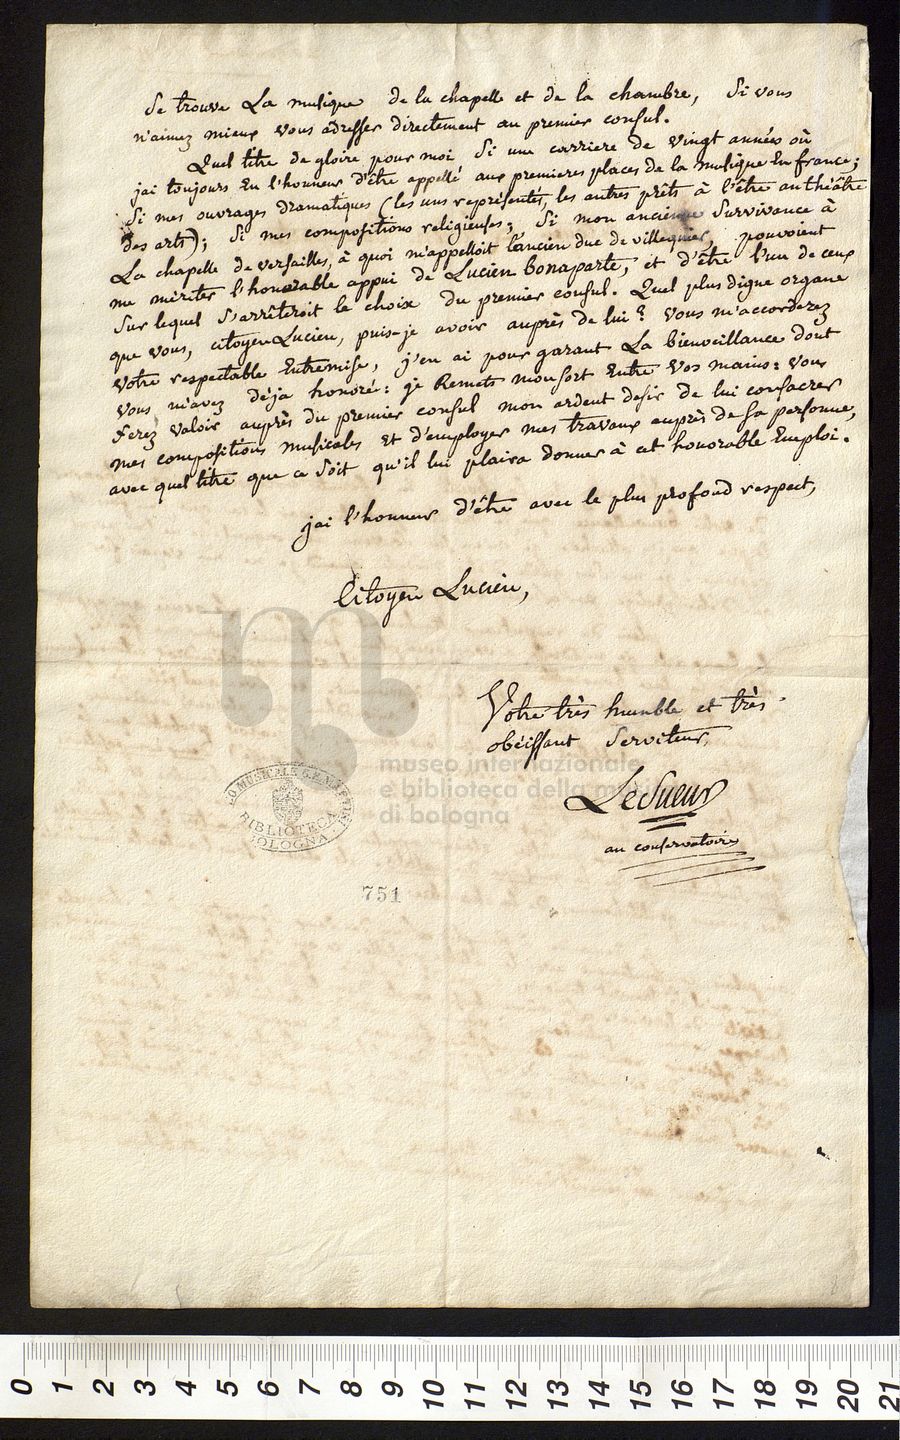 se trouve La musique de la chapelle et de la chambre, si vous
n'aimez mieux vous adresser directement au premier consul.
Quel titre de gloire pour moi, si une carriere de vingt années où
jai toujours Eu l'honneur d'être appellé aux premieres places de la musique En france;
si mes ouvrages dramatiques (les uns représentés, les autres prêts à l'être au théâtre
des arts); si mes compositions religieuses; si mon ancienne survivance à
La chapelle de versailles, à quoi m'appelloit l'ancien duc de villequier, pouvoient
me mériter l'honorable appui de Lucien bonaparte, et d'être l'un de ceux
sur lequel s'arrêteroit le choix du premier consul. Quel plus digne organe
que vous, citoyen Lucien, puis-je avoir auprès de lui? vous m'accorderez
votre respectable Entremise, j'en ai pour garant La bienveillance dont
vous m'avez déja honoré: je Remets mon sort Entre vos mains: vous
ferez valoir auprès du premier consul mon ardent desir de lui consacrer
mes compositions musicales et d'employer mes travaux auprès de sa personne,
avec quel titre que ce soit qu'il lui plaira donner à cet honorable Emploi.
jai l'honneur d'être avec le plus profond respect,
Citoyen Lucien,
Votre très humble et très
obéissant serviteur,
LeSueur
au conservatoire
museo internazionale
e biblioteca della musica
di bologna
BIBLIOTECA
BOLOGNA
751
0 1 2 3 4 5 6 7 8 9 10 11 12 13 14 15 16 17 18 19 20 21